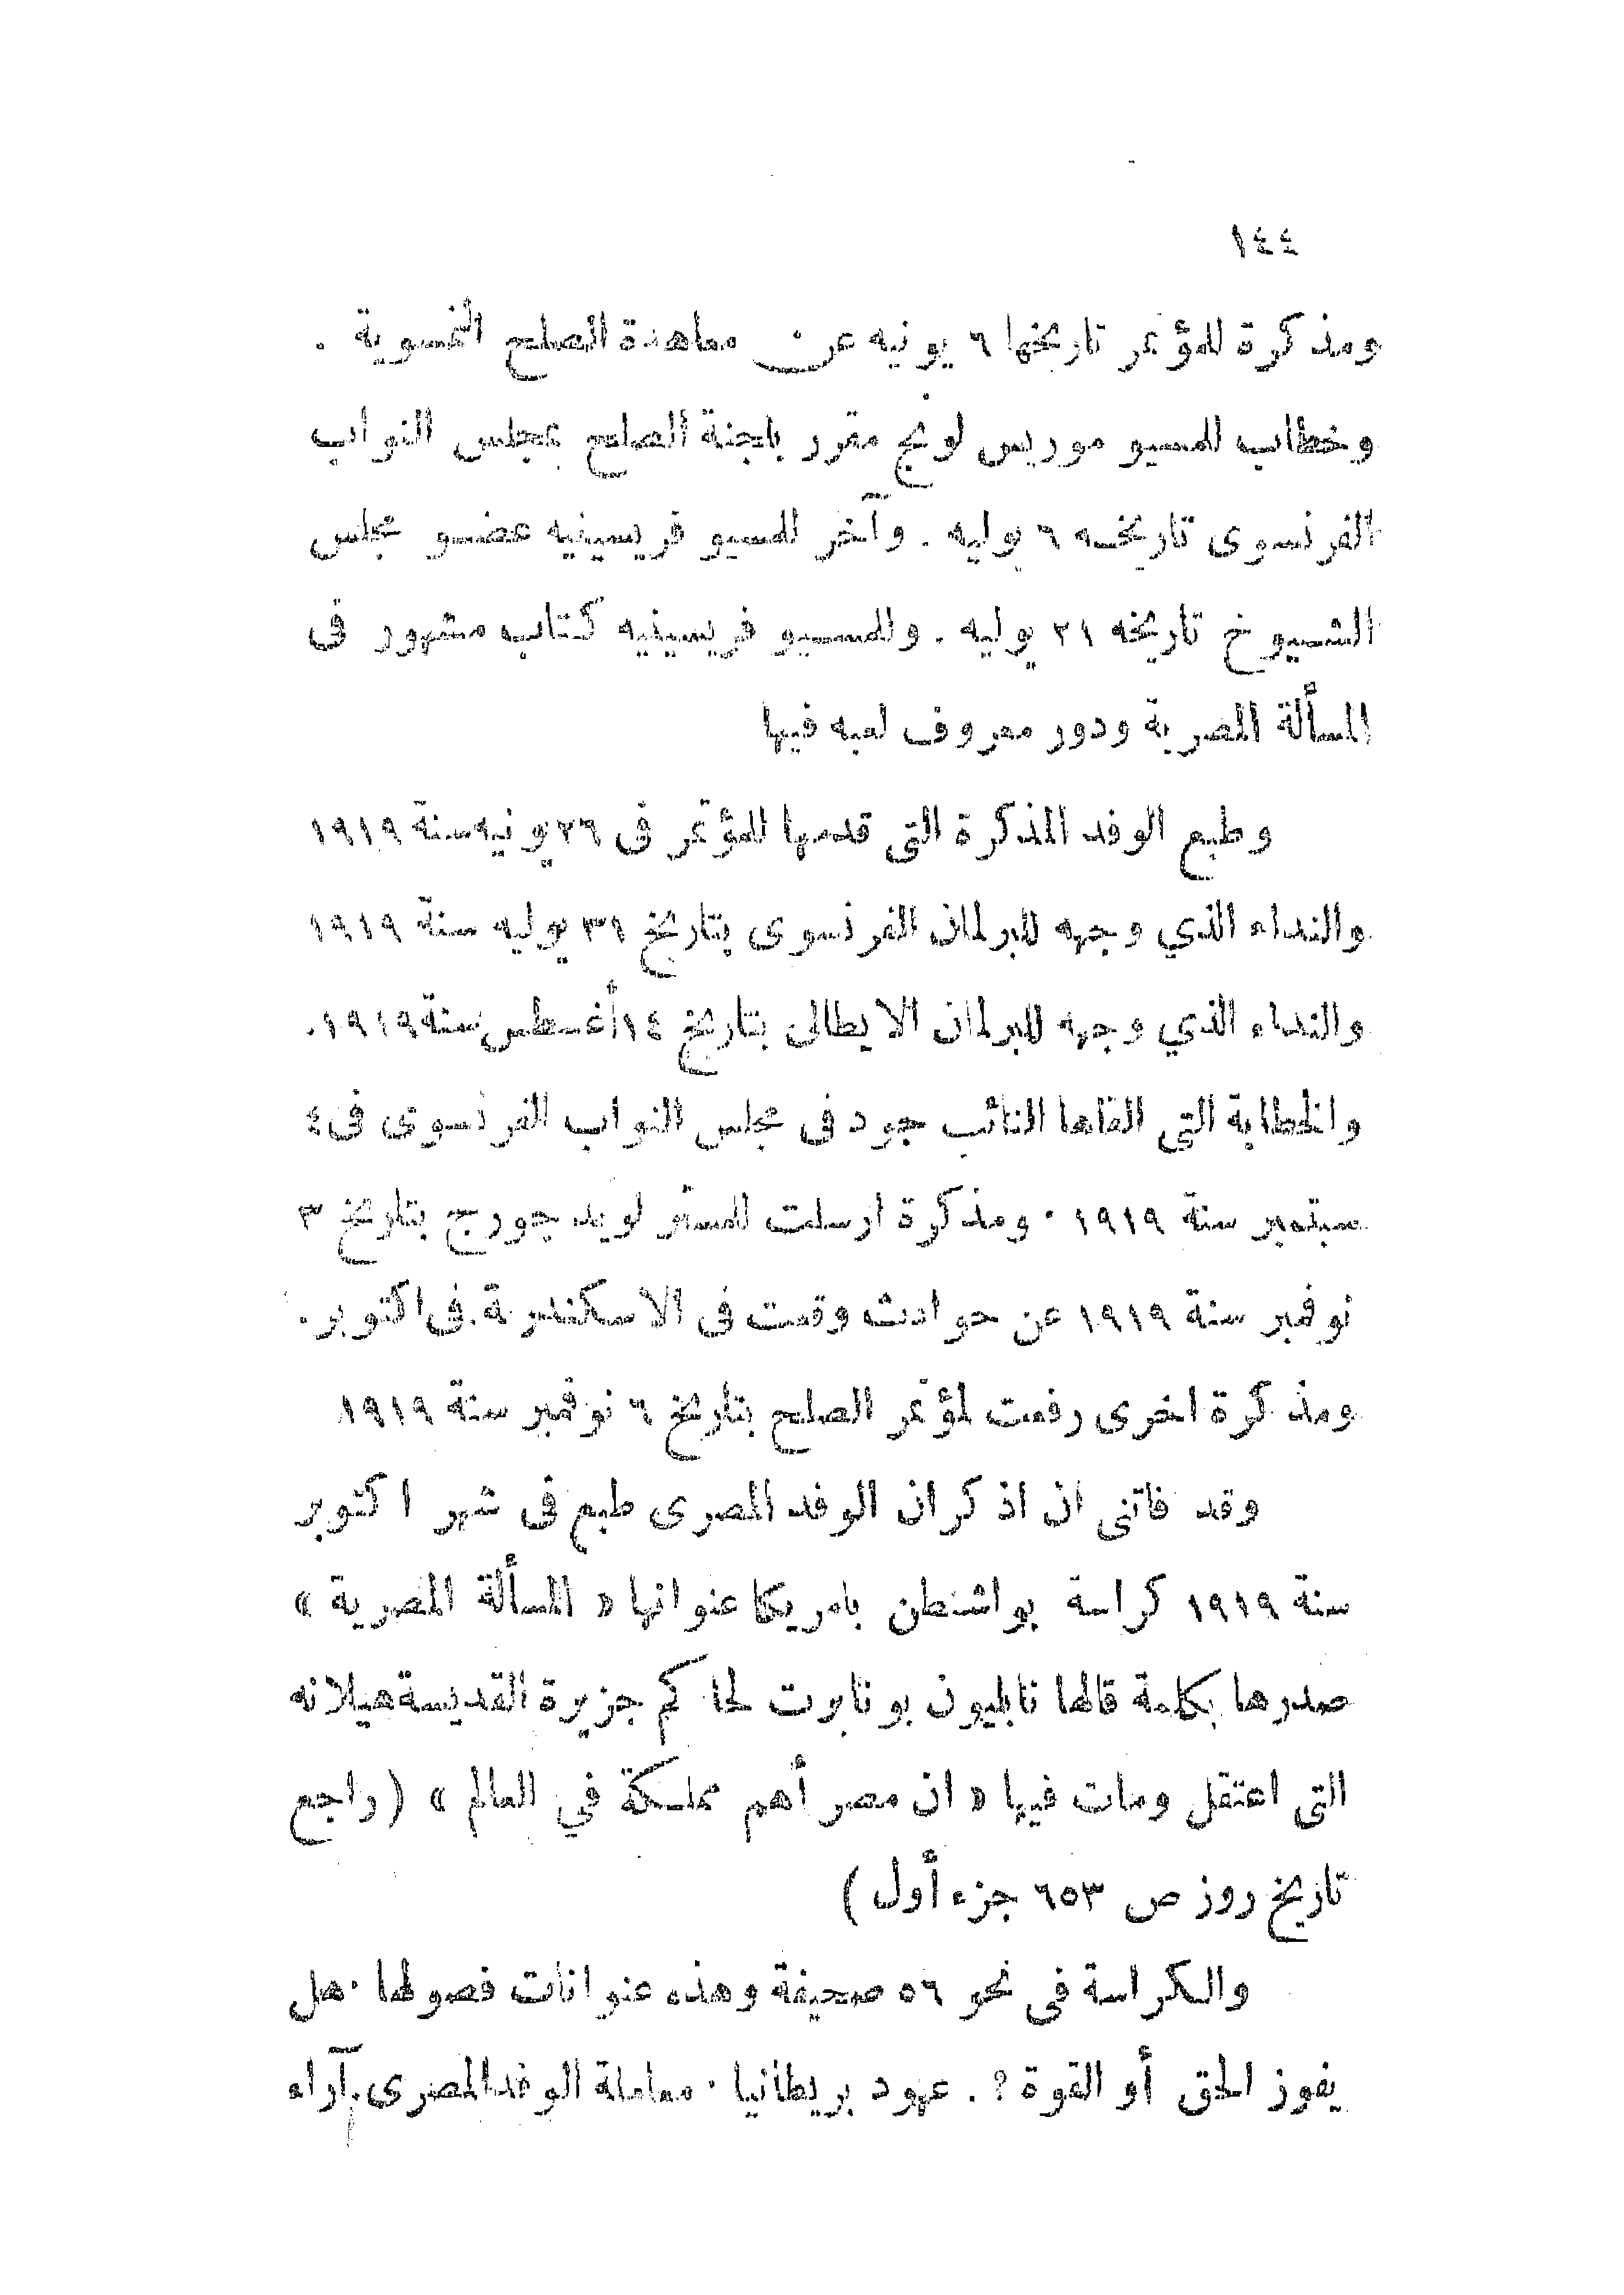 ١٤٤
ومذكرة للمؤتمر تاريخها ٦ يونيه عن معاهدة الصلح النمسوية .
وخطاب للمسيو موريس لونج مقرر بلجنة الصلح بمجلس النواب
الفرنسوى تاريخه ٦ يوليه . وآخر للمسيو فريسينيه عضو مجلس
الشيوخ تاريخه ٢١ يوليه . وللمسيو فريسينيه كتاب مشهور فى
المسألة المصرية ودور معروف لعبه فيها
وطبع الوفد المذكرة التى قدمها للمؤتمر فى ٢٦ يونيه سنة ١٩١٩
والنداء الذي وجهه للبرلمان الفرنسوى بتاريخ ٣١ يوليه سنة ١٩١٩
والنداء الذي وجهه للبرلمان الايطالى بتاريخ ١٤ أغسطس سنة ١٩١٩.
والخطابة التى القاها النائب جود فى مجلس النواب الفرنسوى فى ٤
سبتمبر سنة ١٩١٩ . ومذكرة ارسلت للمستر لويد جورج بتاريخ ٣
نوفمبر سنة ١٩١٩ عن حوادث وقعت فى الاسكندرية فى اكتوبر .
ومذكرة اخرى رفعت لمؤتمر الصلح بتاريخ ٦ نوفمبر سنة ١٩١٩
وقد فاتنى ان اذكر ان الوفد المصرى طبع فى شهر اكتوبر
سنة ١٩١٩ كراسة بواشنطن بامريكا عنوانها « المسألة المصرية »
صدرها بكلمة قالها نابليون بونابرت لحاكم جزيرة القديسة هيلانه
التى اعتقل ومات فيها « ان مصر أهم مملكة في العالم » (راجع
تاريخ روز ص ٦٥٣ جزء أول )
والكراسة فى نحو ٥٦ صحيفة وهذه عنوانات فصولها . هل
يفوز الحق أو القوة ؟ . عهود بريطانيا . معاملة الوفد المصرى . آراء